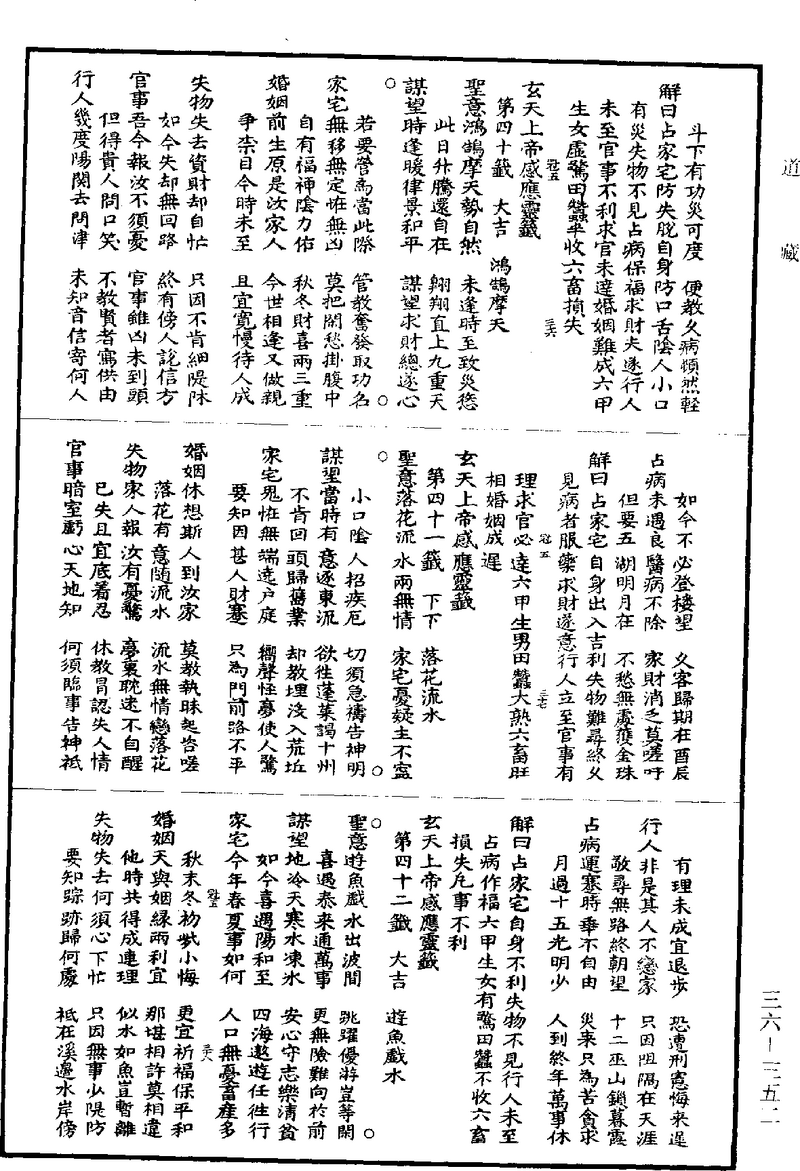 道藏
斗下有功災可度　便教久病頓然輕
解曰占家宅防失脫自身防口舌陰人小口
有災失物不見占病保福求財未遂行人
未至官事不利求官未達婚姻難成六甲
生女虛驚田蠶半收六畜損失
玄天上帝感應靈籤
第四十籤　大吉　鴻鵠摩天
聖意鴻鵠摩天勢自然　未逢時至致災愆
此日升騰還自在　翱翔直上九重天
謀望時逢暖律景和平　謀望求財總遂心
○　○
若要營為當此際　管教奮發取功名
家宅無移無定恠無凶　莫把閑愁掛腹中
自有福神陰力佑　秋冬財喜兩三重
婚姻前生原是汝家人　今世相逢又做親
爭柰目今時未至　且宜寬慢待人成
失物失去資財却自忙　只因不肯細隄防
如今失却無回路　終有傍人說信方
官事吾今報汝不須憂　官事雖凶未到頭
但得貴人開口笑　不教賢者寫供由
行人幾度陽關去問津　未知音信寄何人
如今不必登樓望　久客歸期在酉辰
占病未遇良醫病不除　家財消乏莫嗟吁
但要五湖明月在　不愁無處獲金珠
解曰占家宅自身出入吉利失物難尋終久
見病者服藥求財遂意行人立至官事有
理求官必達六甲生男田蠶大熟六畜旺
相婚姻成遲
玄天上帝感應靈籤
第四十一籤　下下　落花流水
聖意落花流水兩無情　家宅憂疑生不寧
○　○
小口陰人招疾厄　切須急禱告神明
謀望當時有意逐東流　欲徃蓬萊謁十州
不肯回頭歸舊業　却教埋沒入荒坵
家宅鬼恠無端遶戶庭　嚮聲怪夢使人驚
要知因甚人財蹇　只為門前路不平
婚姻休想斯人到汝家　莫教執昧起咨嗟
落花有意隨流水　流水無情戀落花
失物家人報汝有憂驚　夢裏耽迷不自醒
已失且宜底着忍　休教冒認失人情
官事暗室虧心天地知　何須臨事告神祇
有理未成宜退步　恐遭刑憲悔來遲
行人非是其人不戀家　只因阻隔在天涯
敬尋無路終朝望　十二巫山鎖暮霞
占病運蹇時乖不自由　災來只為苦貪求
月過十五光明少　人到終年萬事休
解曰占家宅自身不利失物不見行人未至
占病作福六甲生女有驚田蠶不收六畜
損失凡事不利
玄天上帝感應靈籤
第四十二籤　大吉　遊魚戲水
聖意遊魚戲水出波間　跳躍優游豈等閑
○　○
喜遇泰來通萬事　更無險難向於前
謀望地冷天寒水凍氷　安心守志樂清貧
如今喜遇陽和至　四海遨遊任徃行
家宅今年春夏事如何　人口無憂畜產多
秋末冬初些小悔　更宜祈福保平和
婚姻天與姻緣兩利宜　那堪相許莫相違
他時共得成連理　似水如魚豈暫離
失物失去何須心下忙　只因無事少隄防
要知踪跡歸何處　祇在溪邊水岸傍